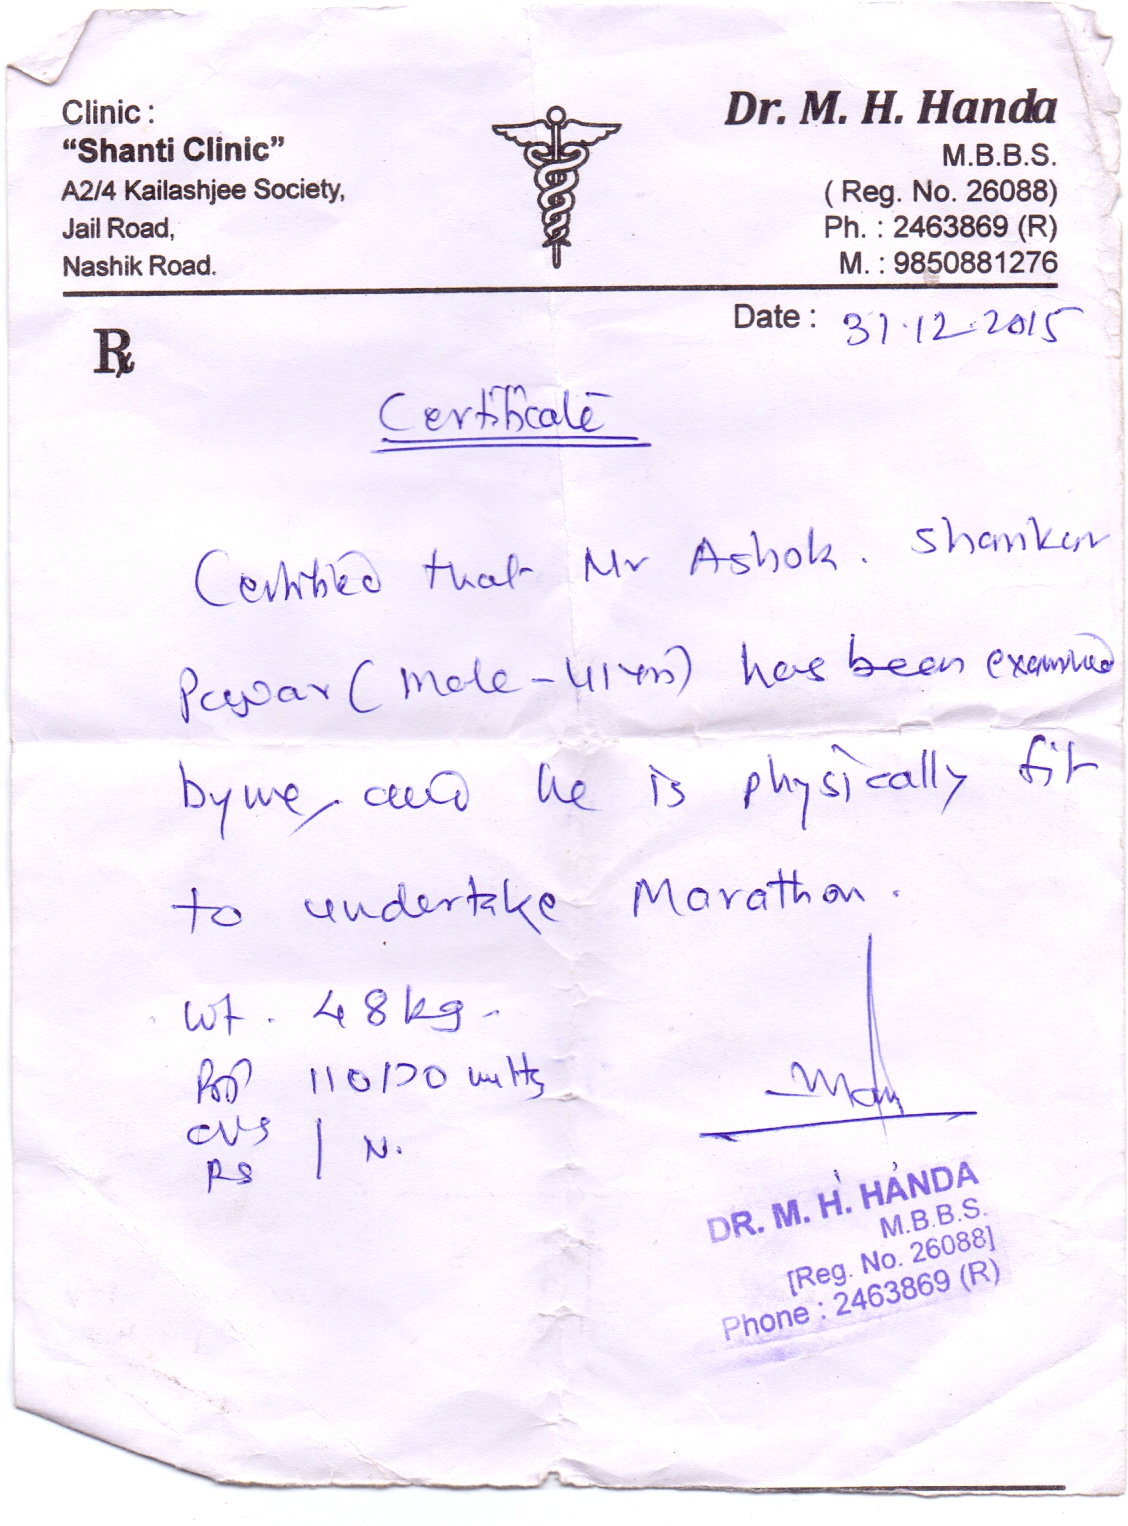 Clinic :
"Shanti Clinic"
A2/4 Kailashjee Society,
Jail Road,
Nashik Road.
Dr. M. H. Handa
M.B.B.S.
( Reg. No. 26088)
Ph. : 2463869 (R)
M. : 9850881276
Date : 31.12.2015
Rx
Certificate
Certified that Mr Ashok. Shankar
Pawar (Male - 41 yrs) has been examined
by me, and he is physically fit
to undertake Marathon.
Wt. 48 kg.
BP 110/70 mmHg
CVS
RS | N.
DR. M. H. HANDA
M.B.B.S.
[Reg. No. 26088]
Phone : 2463869 (R)